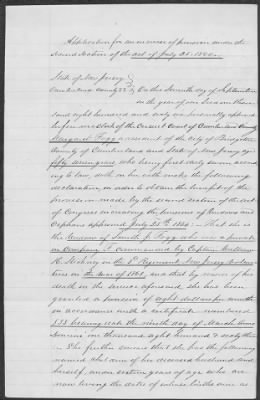 Application for an increase of pension under the
second section of the act of July 25. 1866.
State of New Jersey
Cumberland County SS On this Seventh day of September
in the year of our Lord one thou-
sand eight hundred and sixty six personally appeared
before me clerk of the Circuit Court of Cumberland County
Margaret Fogg a resident of the City of Bridgeton
County of Cumberland and State of New Jersey age
fifty seven years, who being first duly sworn accord-
ing to law, doth on her oath make the following
declaration, in order to obtain the benefit of the
provision made by the second section of the act
of Congress increasing the pensions of Widows and
Orphans approved July 25th 1866: That she is
the Widow of Smith J. Fogg who was a private
in Company commanded by Captain
R. in the Regiment New Jersey Volun-
teers in the War of 1861, and that by reason of his
death in the service aforesaid, she has been
granted a pension of eight dollars per month
in accordance with a certificate numbered
bearing date the ninth day of March Anno
Domini one thousand eight hundred & sixty three
She further swears that she has the following
named children of her deceased husband and
herself, under sixteen years of age who are
now living the dates of whose births are as